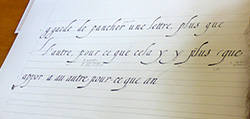 garde de pancher une lettre, plus que
l'autre, pour ce que cela y y plus que
appor a au autre pour ce que an